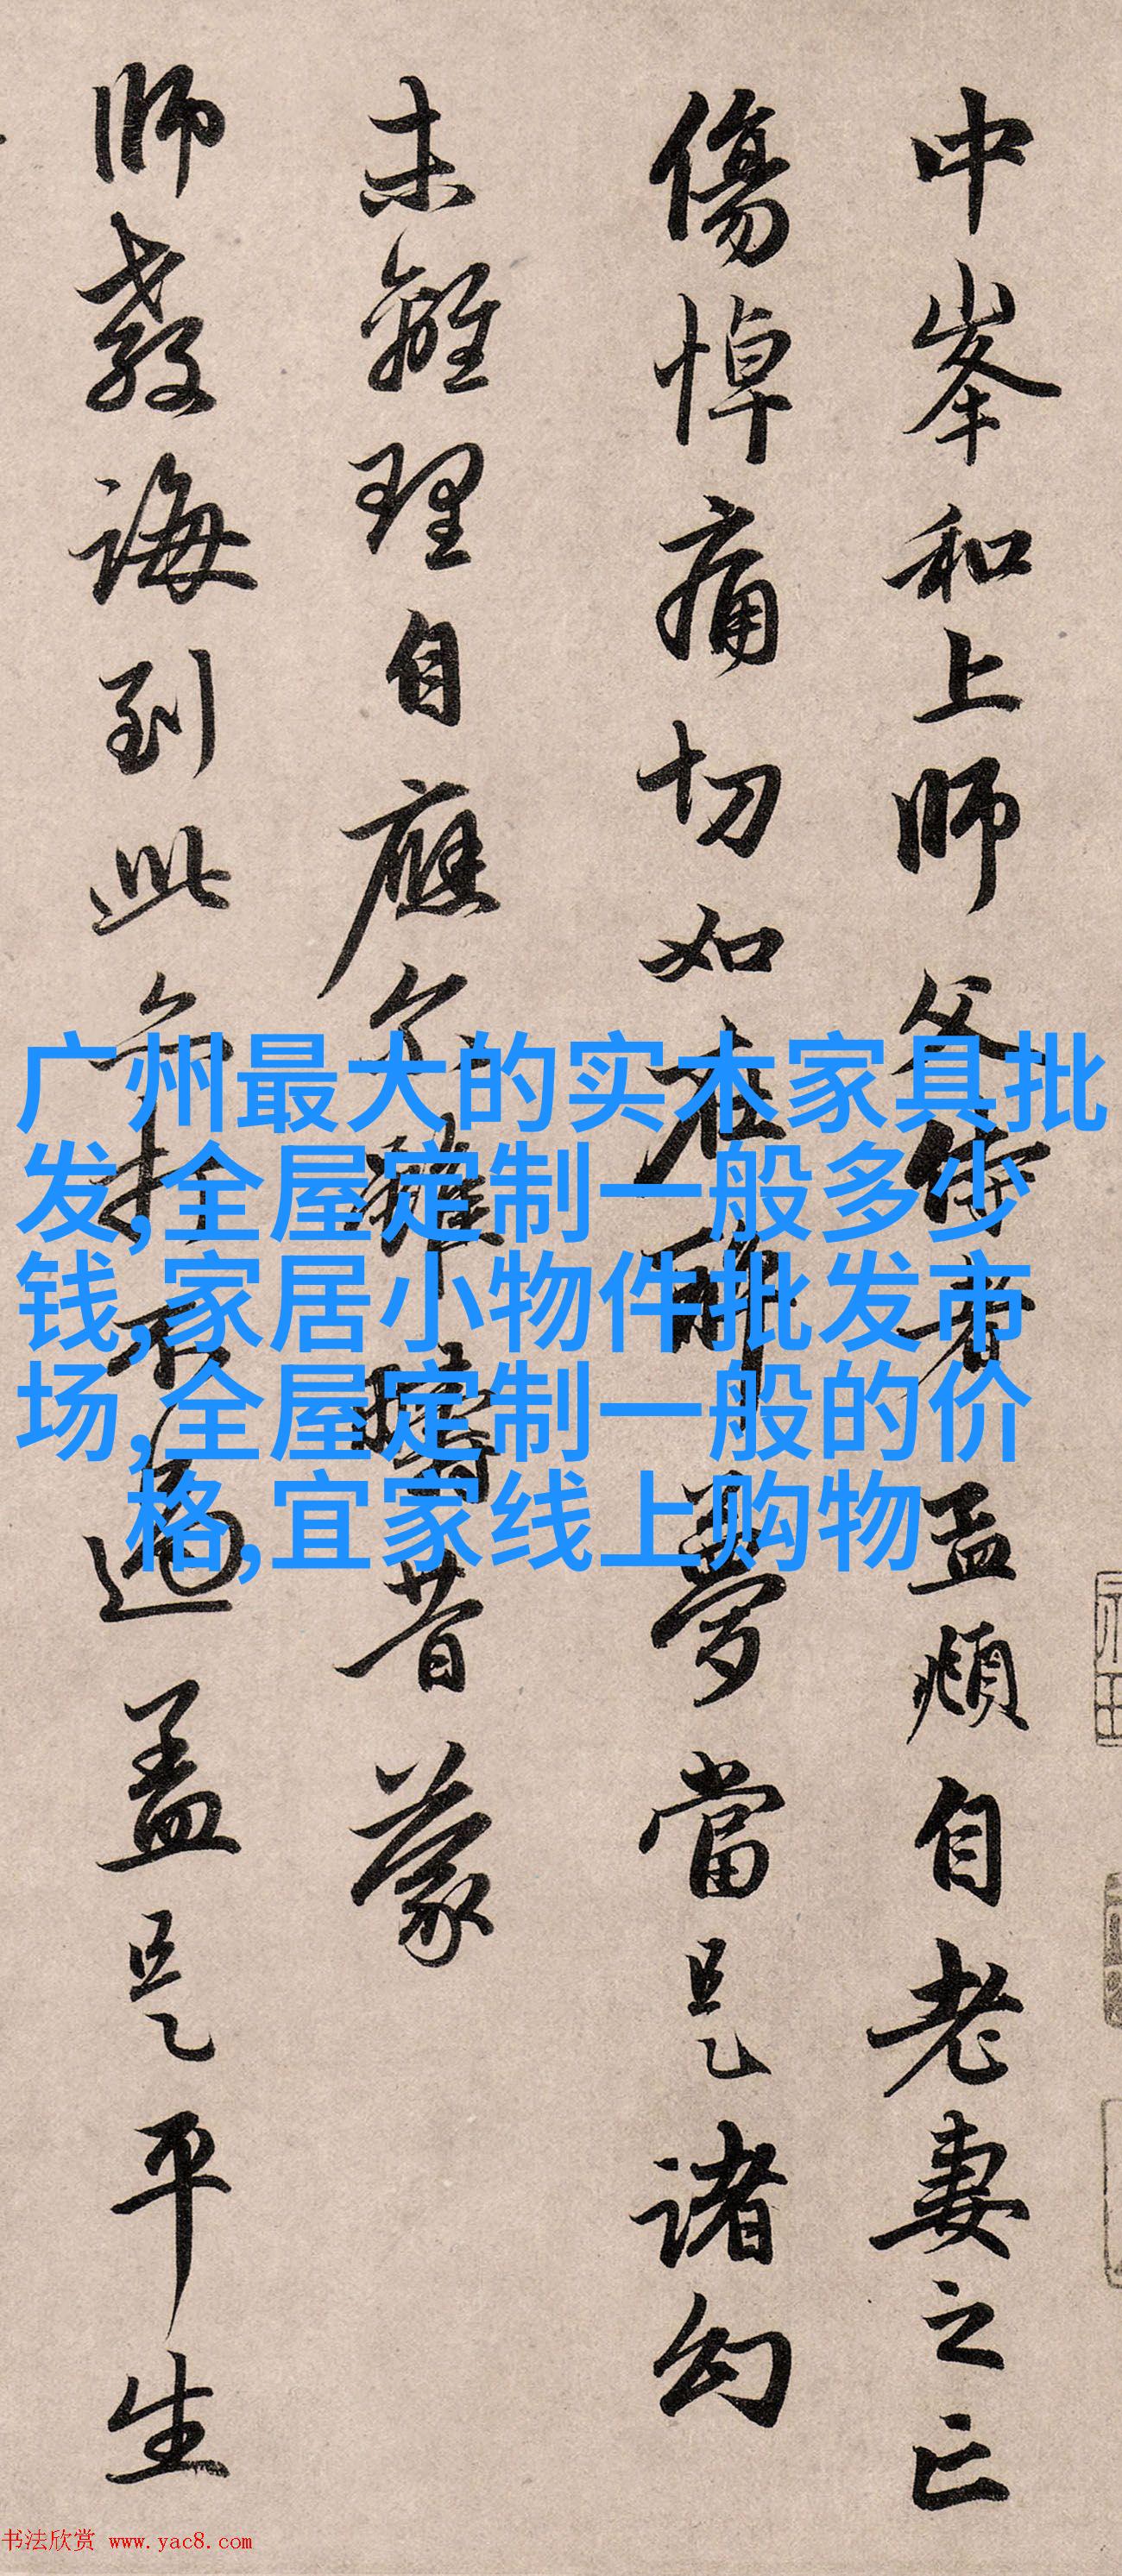 中峯和上師父侍者孟頫自老妻之亡
傷悼痛切如在醉夢當是諸幻
未離理自應尔雖疇昔蒙
師教誨到此亦打不過蓋是平生
广州最大的实木家具批
发,全屋定制一般多少
钱,家居小物件批发市
场,全屋定制一般的价
格,宜家线上购物
书法欣赏 www.yac8.com